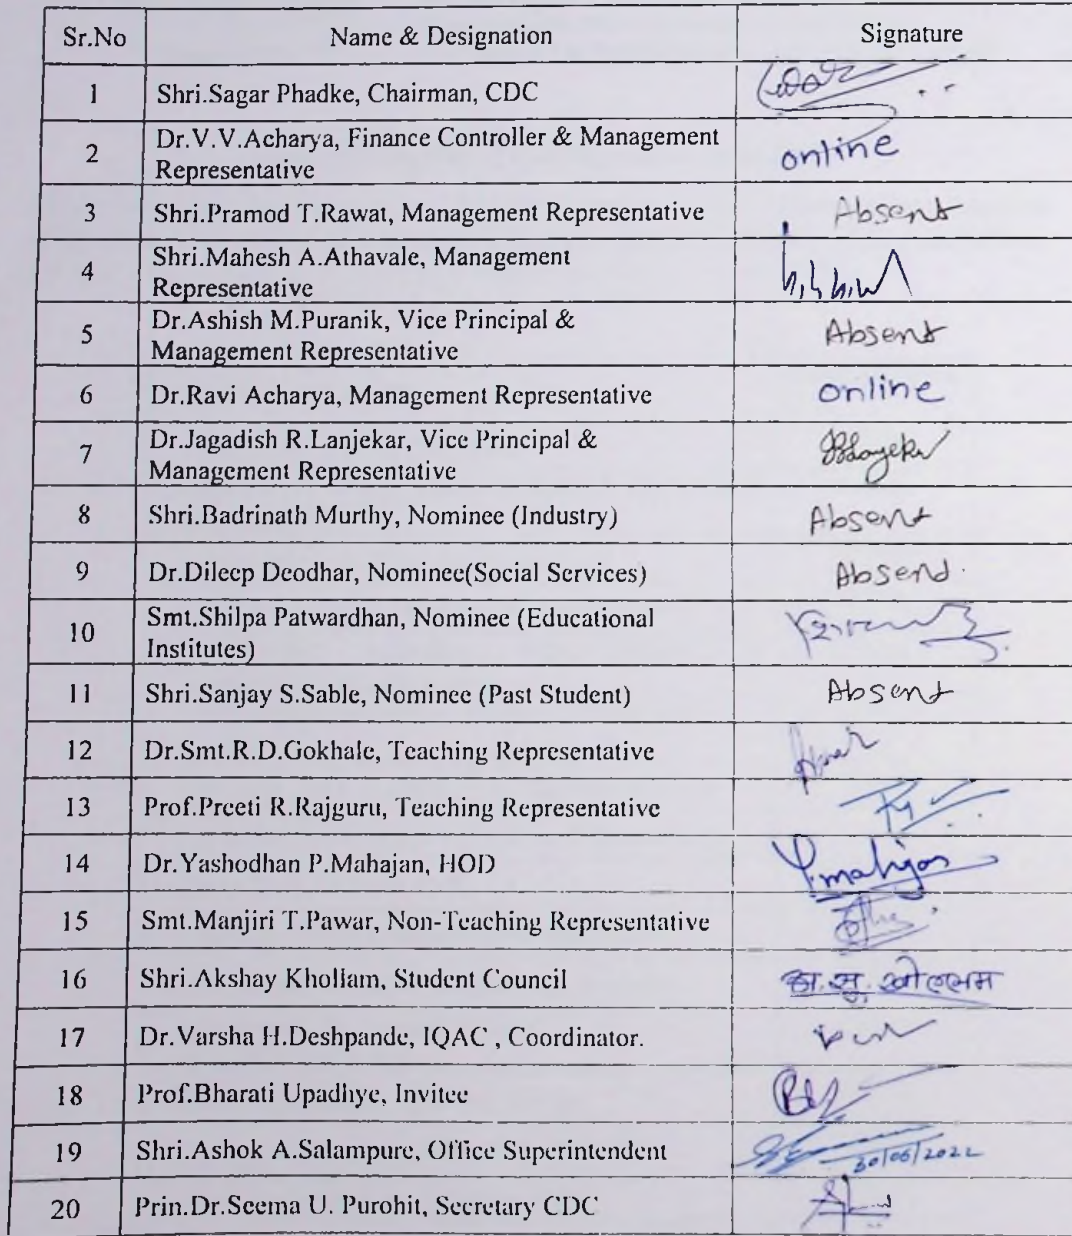 Sr.No Name & Designation Signature
1 Shri.Sagar Phadke, Chairman, CDC
2 Dr.V.V.Acharya, Finance Controller & Management
Representative online
3 Shri.Pramod T.Rawat, Management Representative Absent
4 Shri.Mahesh A.Athavale, Management
Representative
5 Dr.Ashish M.Puranik, Vice Principal &
Management Representative Absent
6 Dr.Ravi Acharya, Management Representative online
7 Dr.Jagadish R.Lanjekar, Vice Principal &
Management Representative
8 Shri.Badrinath Murthy, Nominee (Industry) Absent
9 Dr.Dileep Deodhar, Nominee(Social Services) Absend.
10 Smt.Shilpa Patwardhan, Nominee (Educational
Institutes)
11 Shri.Sanjay S.Sable, Nominee (Past Student) Absent
12 Dr.Smt.R.D.Gokhale, Teaching Representative
13 Prof.Preeti R.Rajguru, Teaching Representative
14 Dr.Yashodhan P.Mahajan, HOD
15 Smt.Manjiri T.Pawar, Non-Teaching Representative
16 Shri.Akshay Khollam, Student Council
17 Dr.Varsha H.Deshpande, IQAC , Coordinator.
18 Prof.Bharati Upadhye, Invitee
19 Shri.Ashok A.Salampure, Office Superintendent 30/06/2022
20 Prin.Dr.Seema U. Purohit, Secretary CDC